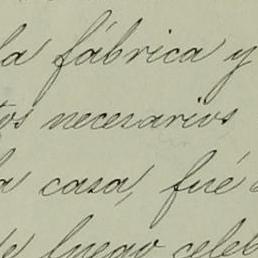 la fábrica y
tos necesarios
la casa, fué
de luego celeb